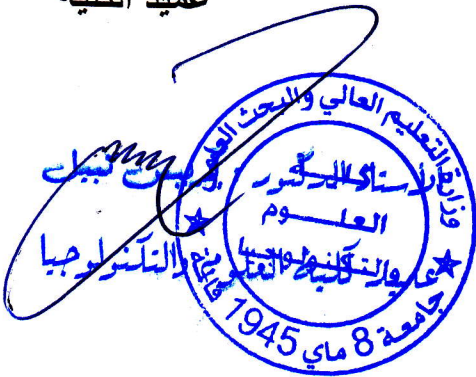 عميد الكلية
وزارة التعليم العالي والبحث العلمي
الأستاذ الدكتور : نبيل
العلــــوم
والتكنولوجيا
عميد كلية العلوم والتكنولوجيا
جامعة 8 ماي 1945 قالمة